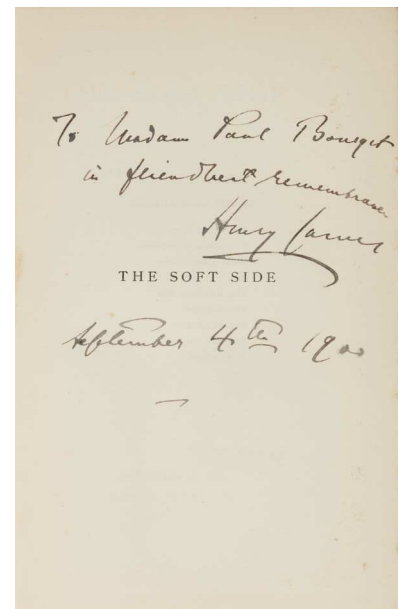 To Madam Paul Bourget
in friendliest remembrance
Henry James
THE SOFT SIDE
September 4th 1900